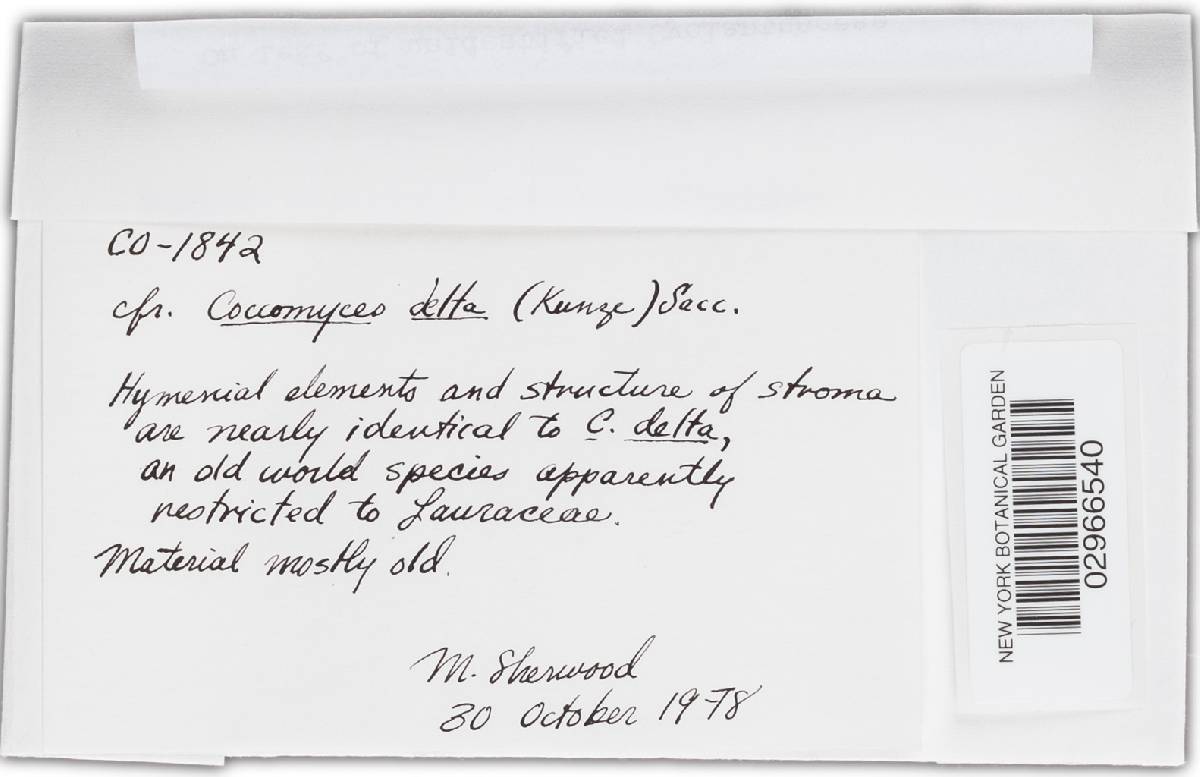 CO-1842
cfr. Coccomyces delta (Kunze) Sacc.
Hymenial elements and structure of stroma
are nearly identical to C. delta,
an old world species apparently
restricted to Lauraceae.
Material mostly old.
M. Sherwood
30 October 1978
NEW YORK BOTANICAL GARDEN
02966540